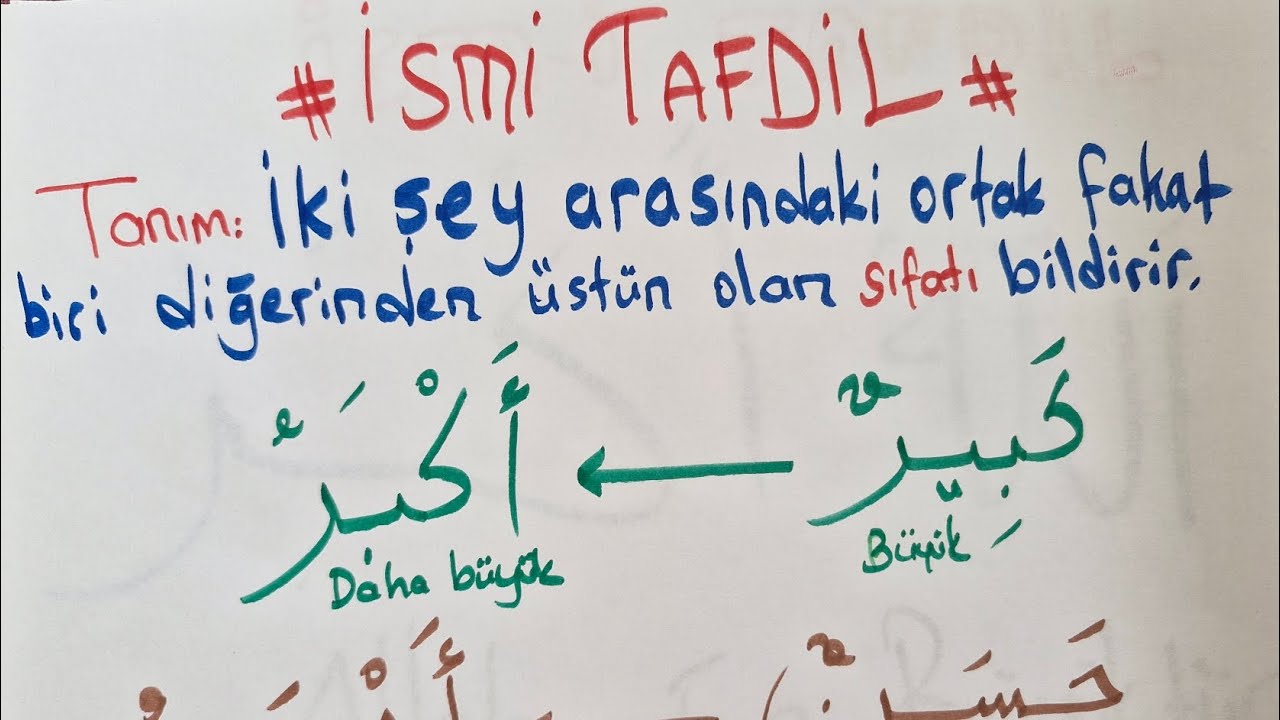 # İSMİ TAFDİL #
Tanım: İki şey arasındaki ortak fakat
biri diğerinden üstün olan sıfatı bildirir.
كَبِيرٌ ← أَكْبَرُ
Büyük Daha büyük
حَسَنٌ